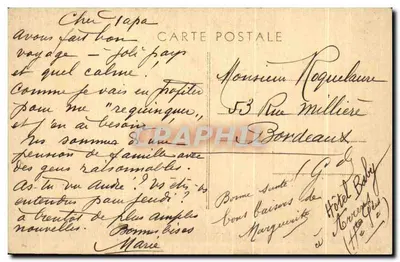 Cher Papa
avons fait bon
voyage - joli pays
et quel calme!
Comme je vais en profiter
pour me "requinquer"
et j'en ai besoin
sommes
pension de famille avec
des gens raisonnables.
As-tu vu André?
entendus pour jeudi?
à bientôt de plus amples
nouvelles. Bonnes bises
Marie
CARTE POSTALE
Monsieur Roquelaure
53 Rue Millière
Bordeaux
(Gde)
Bonne santé
bons baisers de
Marguerite
à
Hôtel Baby
Htes Pyr
CARTHAPHIC